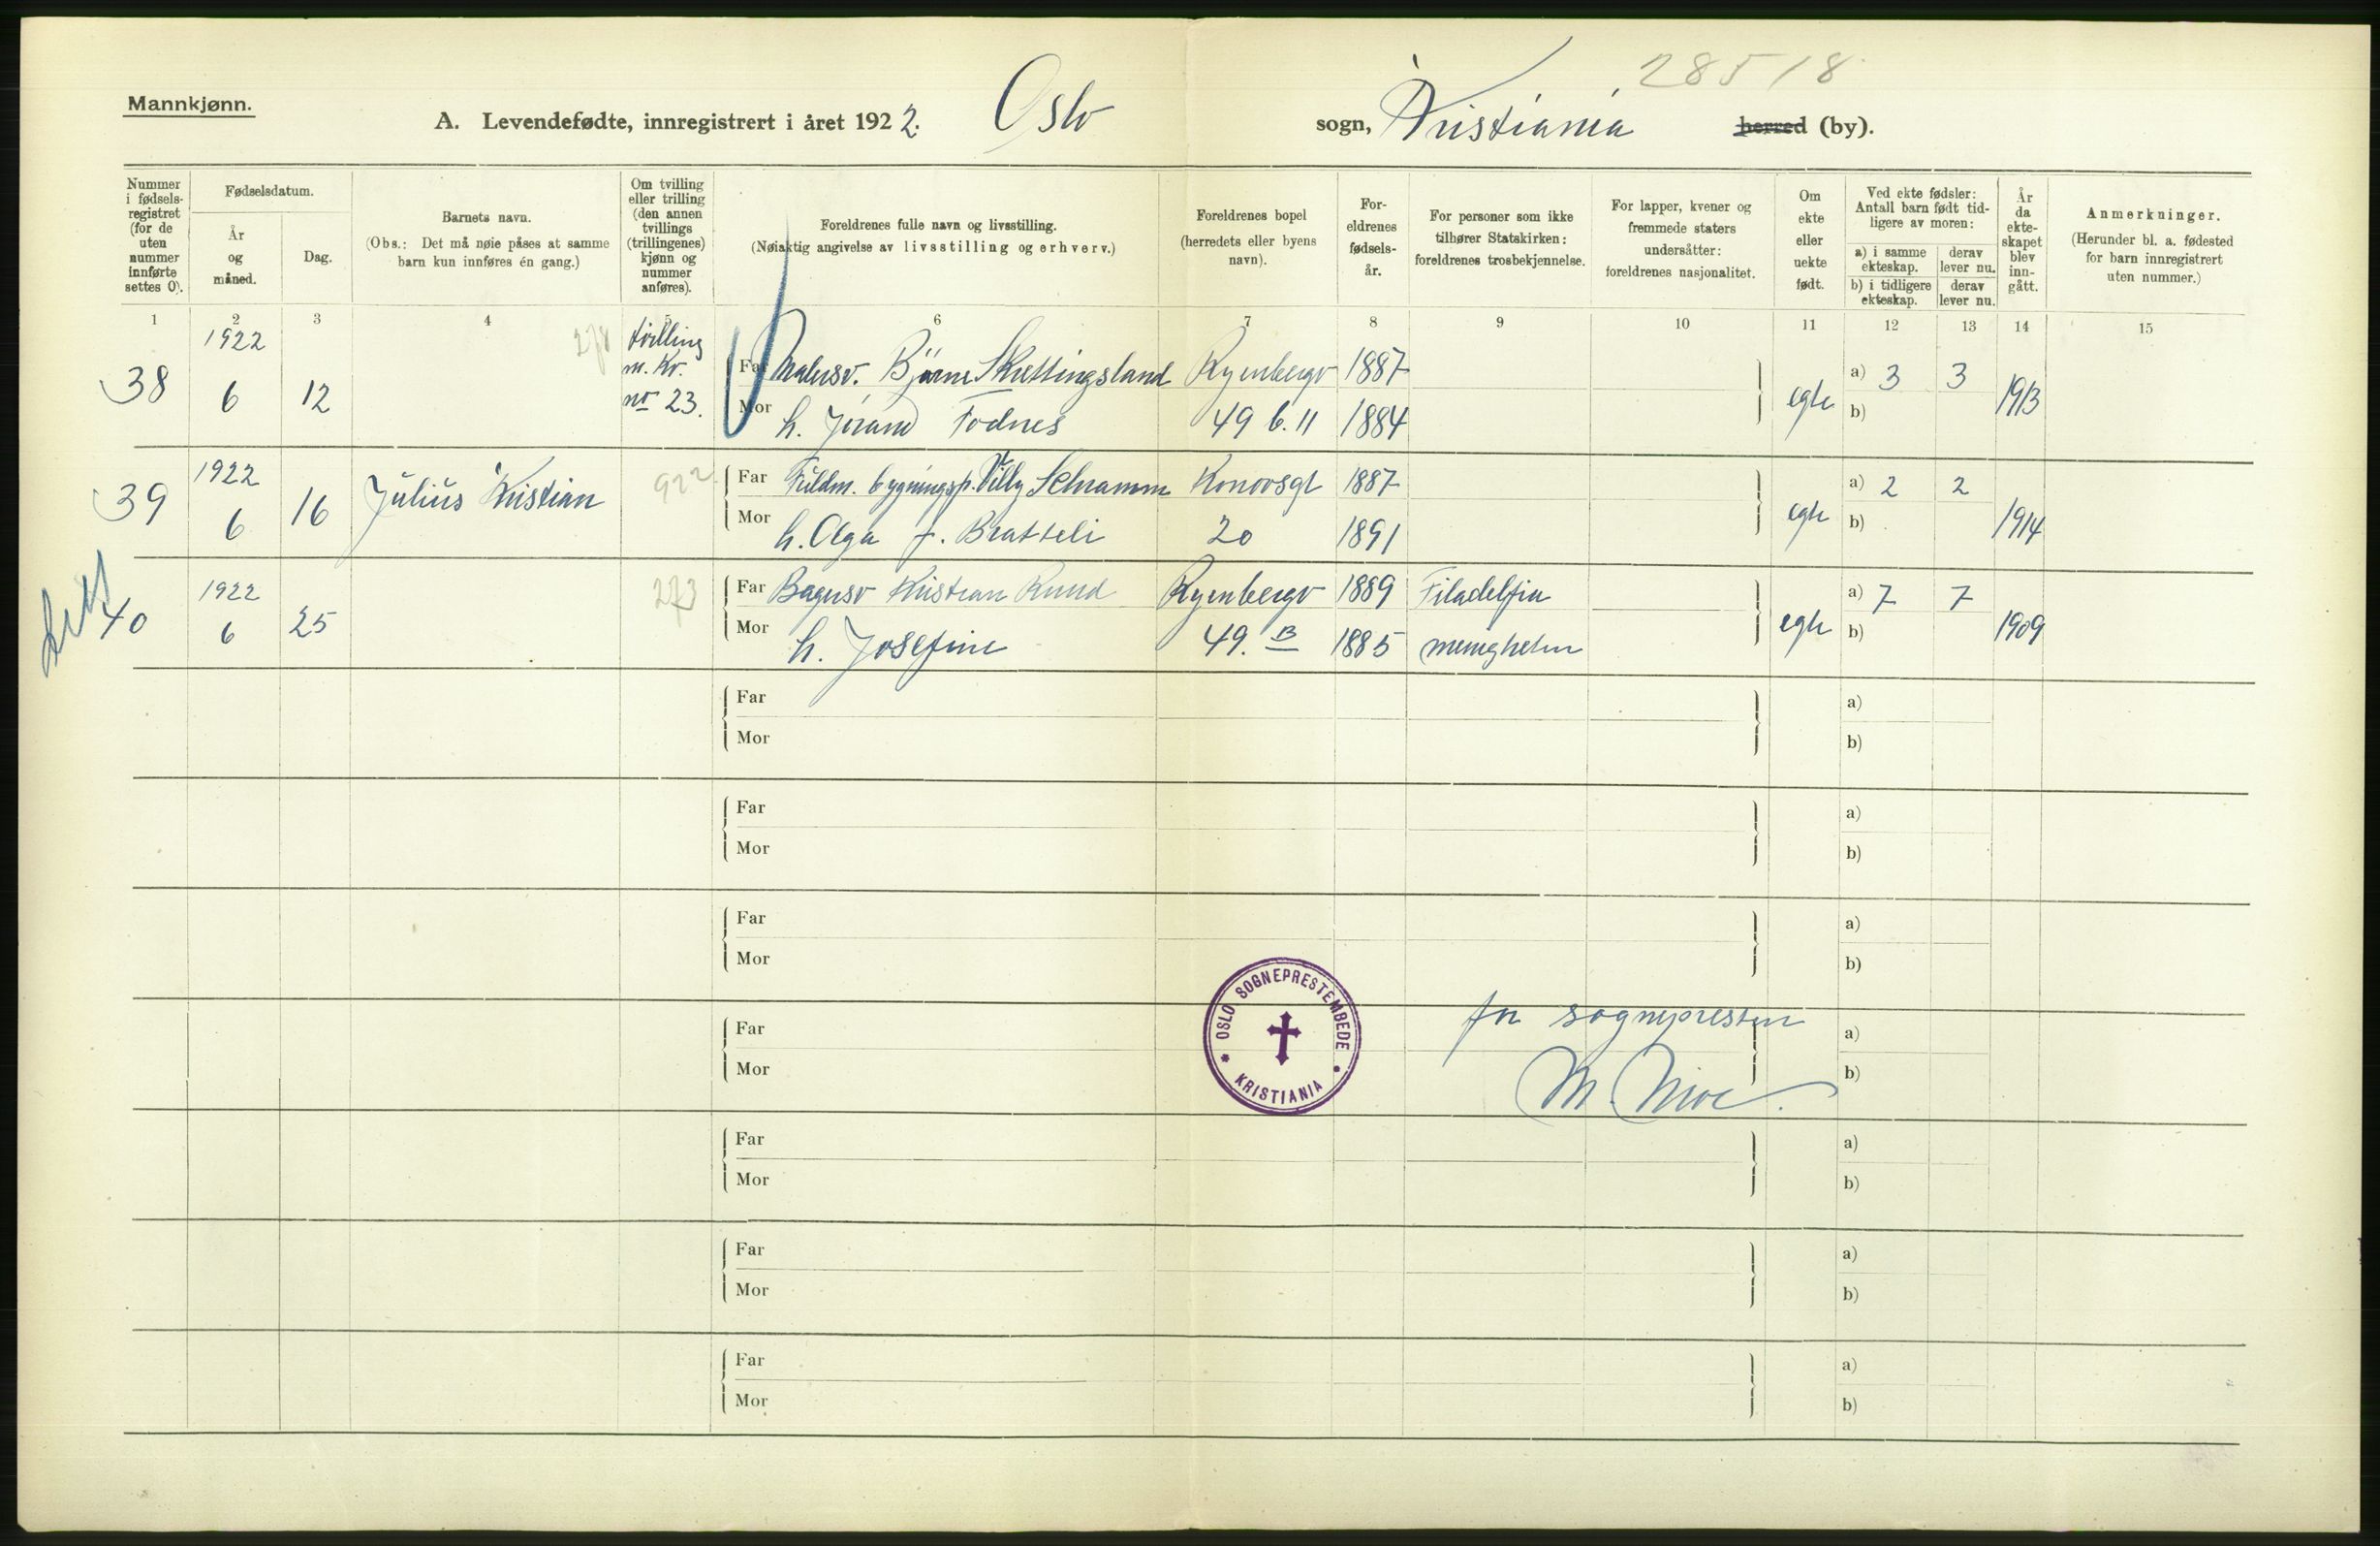 28518
Mannkjønn.
A. Levendefødte, innregistrert i året 1922. Oslo sogn, Kristiania herred (by).
Nummer i fødsels- registret (for de uten nummer innførte settes 0).
Fødselsdatum.
År og måned.
Dag.
Barnets navn.
(Obs.: Det må nøie påses at samme barn kun innføres én gang.)
Om tvilling eller trilling (den annen tvillings (trillingenes) kjønn og nummer anføres).
Foreldrenes fulle navn og livsstilling.
(Nøiaktig angivelse av livsstilling og erhverv.)
Foreldrenes bopel (herredets eller byens navn).
For- eldrenes fødsels- år.
For personer som ikke tilhører Statskirken: foreldrenes trosbekjennelse.
For lapper, kvener og fremmede staters undersåtter: foreldrenes nasjonalitet.
Om ekte eller uekte født.
Ved ekte fødsler: Antall barn født tid- ligere av moren:
a) i samme ekteskap. derav lever nu.
b) i tidligere ekteskap. derav lever nu.
År da ekte- skapet blev inn- gått.
Anmerkninger.
(Herunder bl. a. fødested for barn innregistrert uten nummer.)
1 2 3 4 5 6 7 8 9 10 11 12 13 14 15
38 1922 6 12 tvilling m. Kv. no 23.
Far Malersv. Bjarne Skrettingsland Ryenbergv 1887 egte a) 3 3 1913
Mor h. Jorand Fodnes 49 b. 11 1884 b)
39 1922 6 16 Julius Kristian 922
Far Fuldm. bygningsp. Villy Schramm Konowsgt 1887 egte a) 2 2 1914
Mor h. Olga f. Bratteli 20 1891 b)
40 1922 6 25 273
Far Bagersv Kristian Ruud Ryenbergv 1889 Filadelfia egte a) 7 7 1909
Mor h. Josefine 49. B 1885 menigheten b)
Far a)
Mor b)
Far a)
Mor b)
Far a)
Mor b)
OSLO SOGNEPRESTEMBEDE
KRISTIANIA
for sognepresten
M. Moe.
Far a)
Mor b)
Far a)
Mor b)
Far a)
Mor b)
Far a)
Mor b)